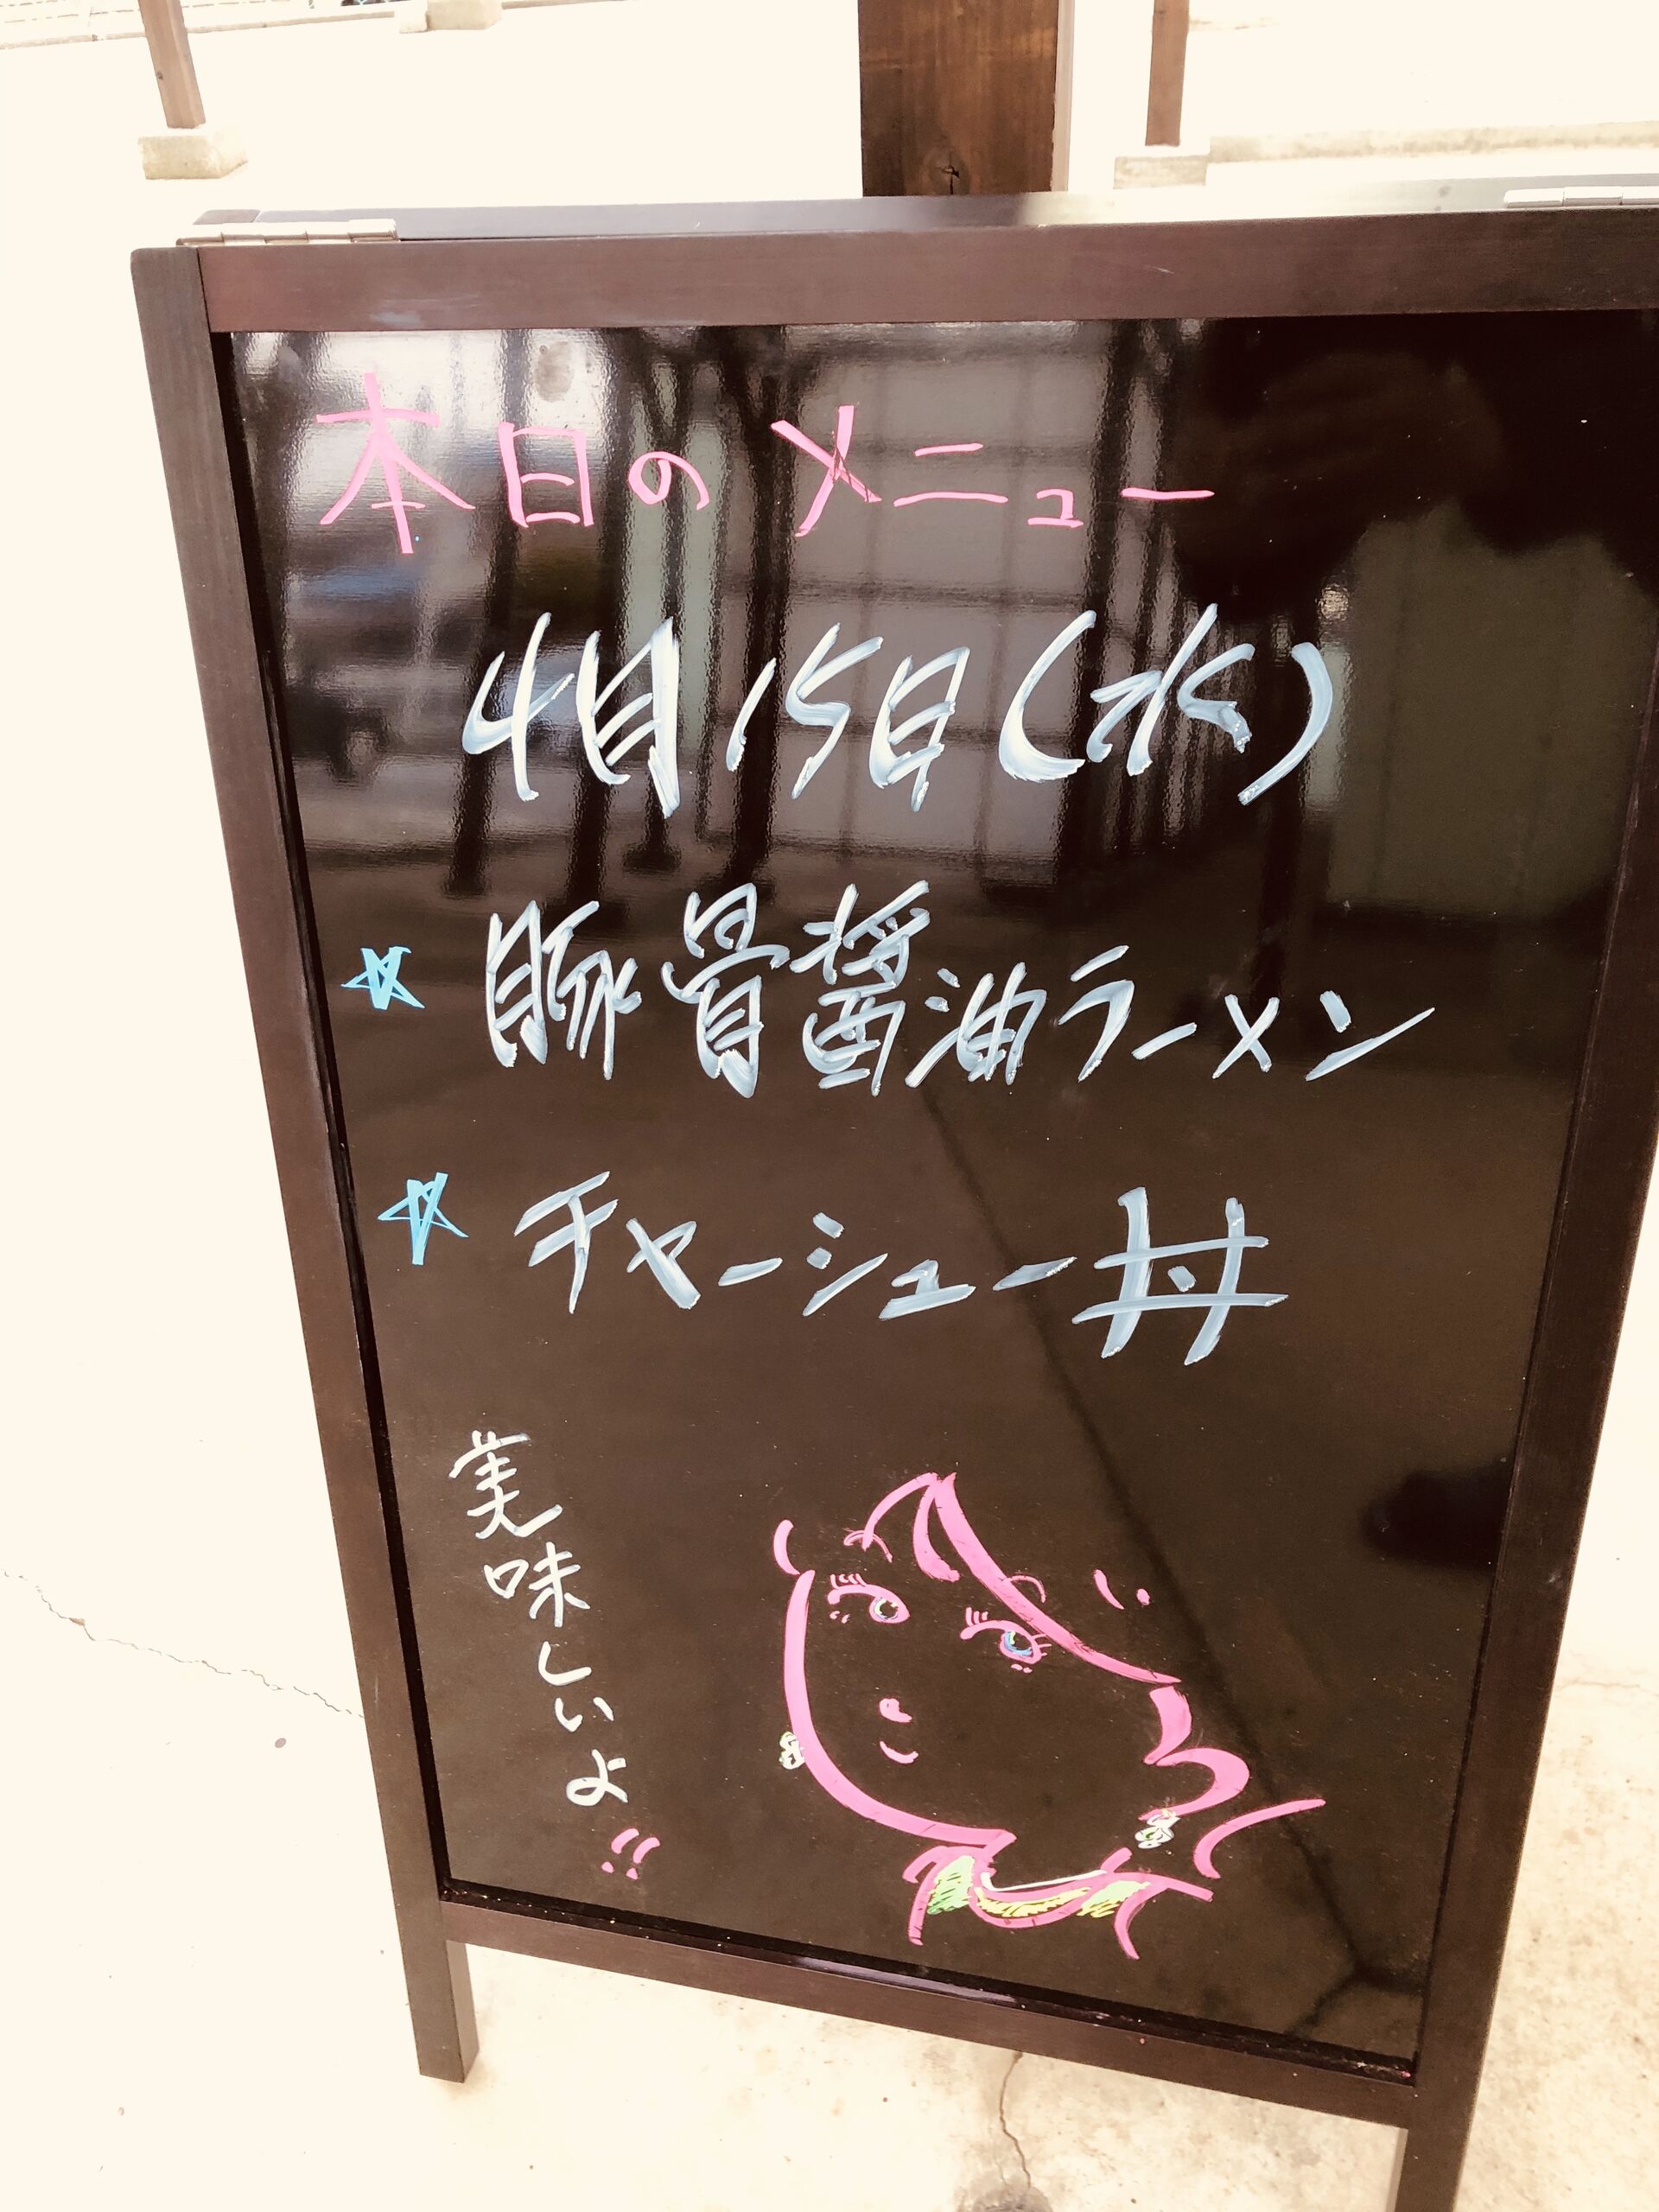 本日のメニュー
4月15日(水)
☆ 豚骨醤油ラーメン
☆ チャーシュー丼
美味しいよ!!